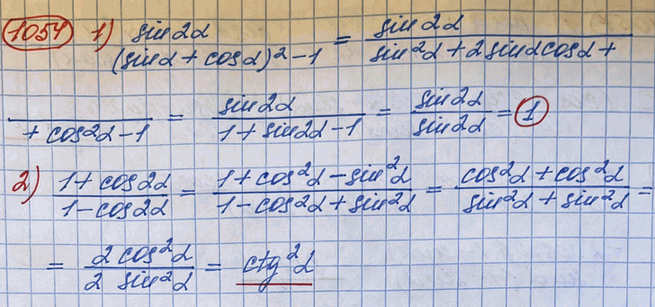 1054 1) sin2α / (sinα + cosα)² - 1 = sin2α / sin²α + 2sinαcosα +
+ cos²α - 1 = sin2α / 1 + sin2α - 1 = sin2α / sin2α = 1
2) 1 + cos2α / 1 - cos2α = 1 + cos²α - sin²α / 1 - cos²α + sin²α = cos²α + cos²α / sin²α + sin²α =
= 2 cos²α / 2 sin²α = ctg²α